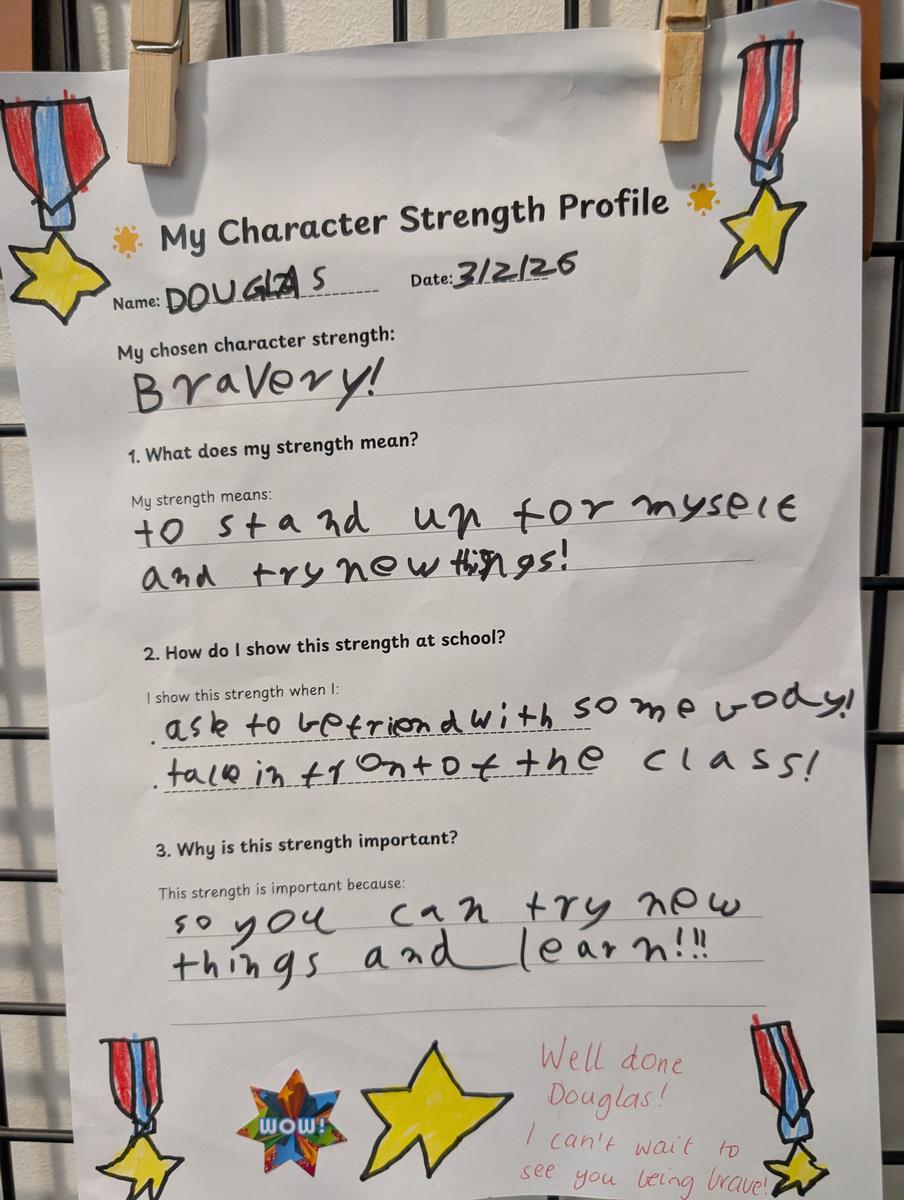 My Character Strength Profile
Name: DOUGLAS Date: 3/2/26
My chosen character strength:
Bravery!
1. What does my strength mean?
My strength means:
to stand up for myself
and try new things!
2. How do I show this strength at school?
I show this strength when I:
. ask to be friend with somebody!
. talk in front of the class!
3. Why is this strength important?
This strength is important because:
so you can try new
things and learn!!!
WOW!
Well done
Douglas!
I can't wait to
see you being brave!